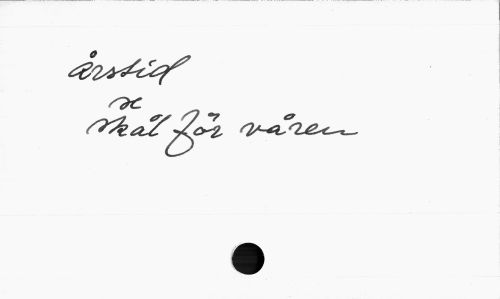 årstid
se
skål för våren